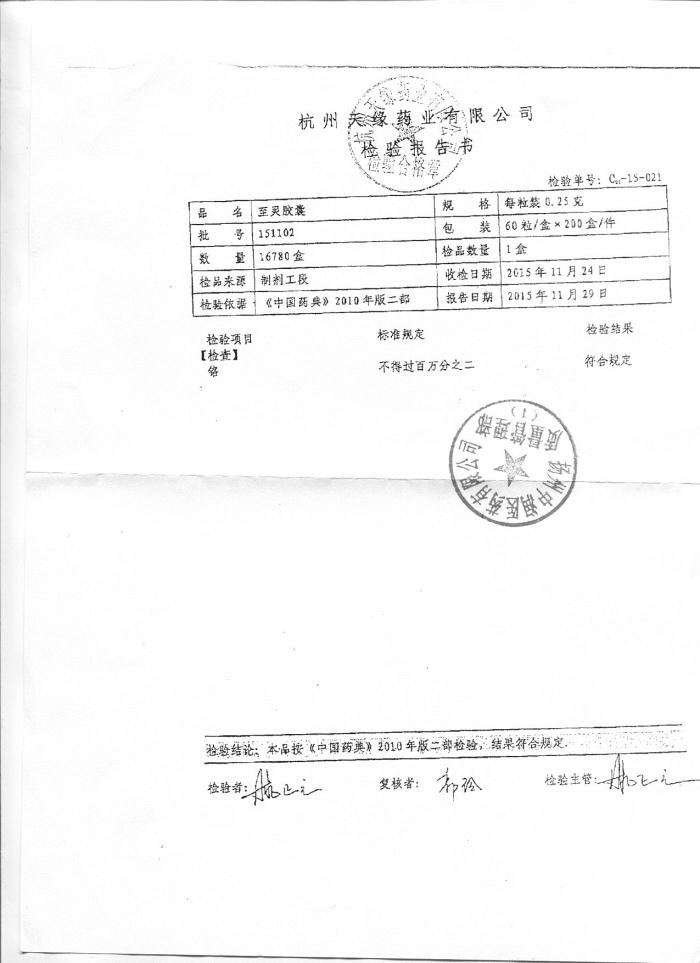 杭州天缘药业有限公司
检验报告书
检验合格章
检验单号：C₀₁-15-021
品 名 至灵胶囊 规 格 每粒装 0.25 克
批 号 151102 包 装 60 粒/盒×200 盒/件
数 量 16780 盒 检品数量 1 盒
检品来源 制剂工段 收检日期 2015 年 11 月 24 日
检验依据 《中国药典》2010 年版二部 报告日期 2015 年 11 月 29 日
检验项目 标准规定 检验结果
【检查】
铬 不得过百万分之二 符合规定
医药有限公司
质量管理部
(1)
检验结论：本品按《中国药典》2010 年版二部检验，结果符合规定.
检验者： 复核者： 检验主管：